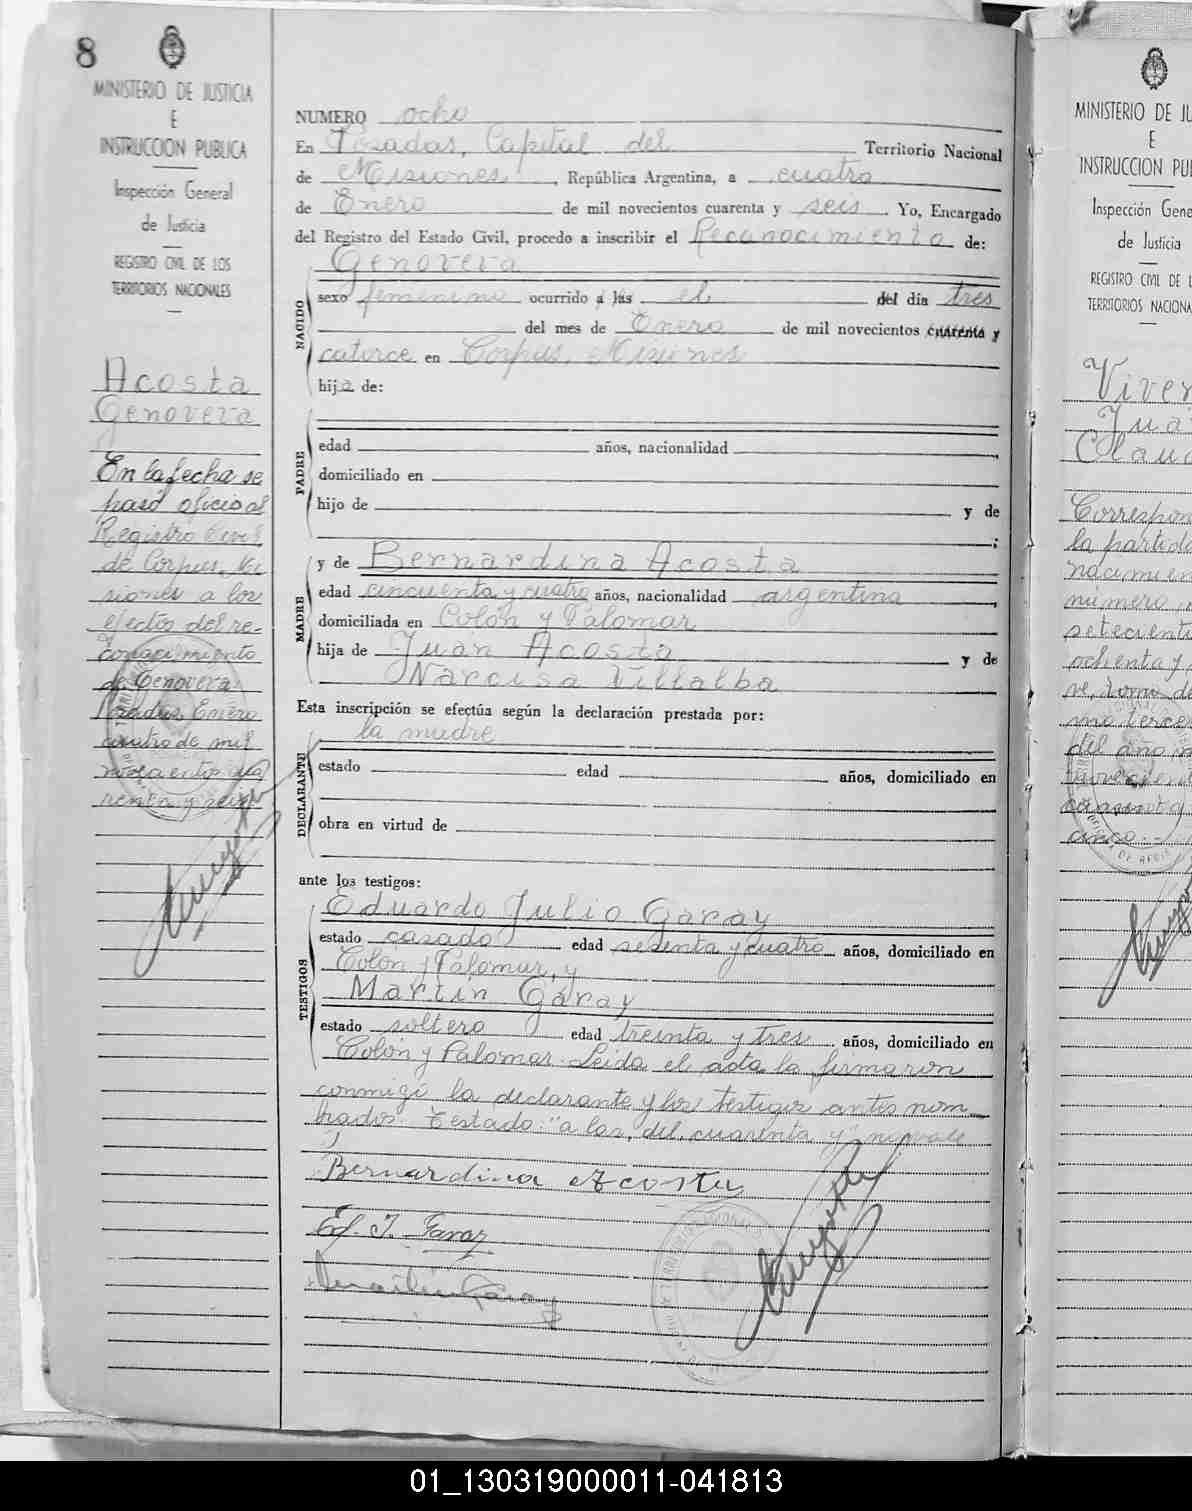 8
MINISTERIO DE JUSTICIA
E
INSTRUCCION PUBLICA
Inspección General
de Justicia
REGISTRO CIVIL DE LOS
TERRITORIOS NACIONALES
Acosta
Genoveva
En la fecha se
pasó oficio al
Registro Civil
de Corpus, Mi
siones a los
efectos del re-
conocimiento
de Genoveva
Posadas, Enero
cuatro de mil
novecientos cua
renta y seis
NUMERO ocho
En Posadas, Capital del Territorio Nacional
de Misiones, República Argentina, a cuatro
de Enero de mil novecientos cuarenta y seis. Yo, Encargado
del Registro del Estado Civil, procedo a inscribir el Reconocimiento de:
Genoveva
NACIDO
sexo femenino ocurrido a las el del día tres
del mes de Enero de mil novecientos cuarenta y
catorce en Corpus, Misiones
hija de:
PADRE
edad años, nacionalidad
domiciliado en
hijo de y de
;
MADRE
y de Bernardina Acosta
edad cincuenta y cuatro años, nacionalidad argentina,
domiciliada en Colón y Palomar
hija de Juan Acosta y de
Narcisa Villalba
Esta inscripción se efectúa según la declaración prestada por:
la madre
DECLARANTE
estado edad años, domiciliado en
obra en virtud de
ante los testigos:
TESTIGOS
Eduardo Julio Garay
estado casado edad sesenta y cuatro años, domiciliado en
Colón y Palomar, y
Martín Garay
estado soltero edad treinta y tres años, domiciliado en
Colón y Palomar. Leida el acta la firmaron
conmigo la declarante y los testigos antes nom
brados. Testado: "a las, del, cuarenta y" no vale
Bernardina Acosta
Ed. J. Garay
Martin Garay
MINISTERIO DE JU
E
INSTRUCCION PU
Inspección Gene
de Justicia
REGISTRO CIVIL DE L
TERRITORIOS NACIONA
Viver
Jua
Clau
Correspon
la partida
nacimien
número
setecient
ochenta y
ve, tomo de
mo tercer
del año m
novecient
cuarenta y
cinco.-
01_130319000011-041813